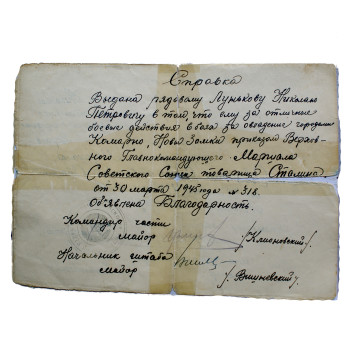 Справка
Выдана рядовому Лунькову Николаю
Петровичу в том что ему за отличные
боевые действия в боях за овладение городами
Комарно, Нове Замки приказом Верхов-
ного Главнокомандующего Маршала
Советского Союза товарища Сталина
от 30 марта 1945 года № 318.
объявлена Благодарность.
Командир части
майор /Климовский/
Начальник штаба
майор /Вишневский/